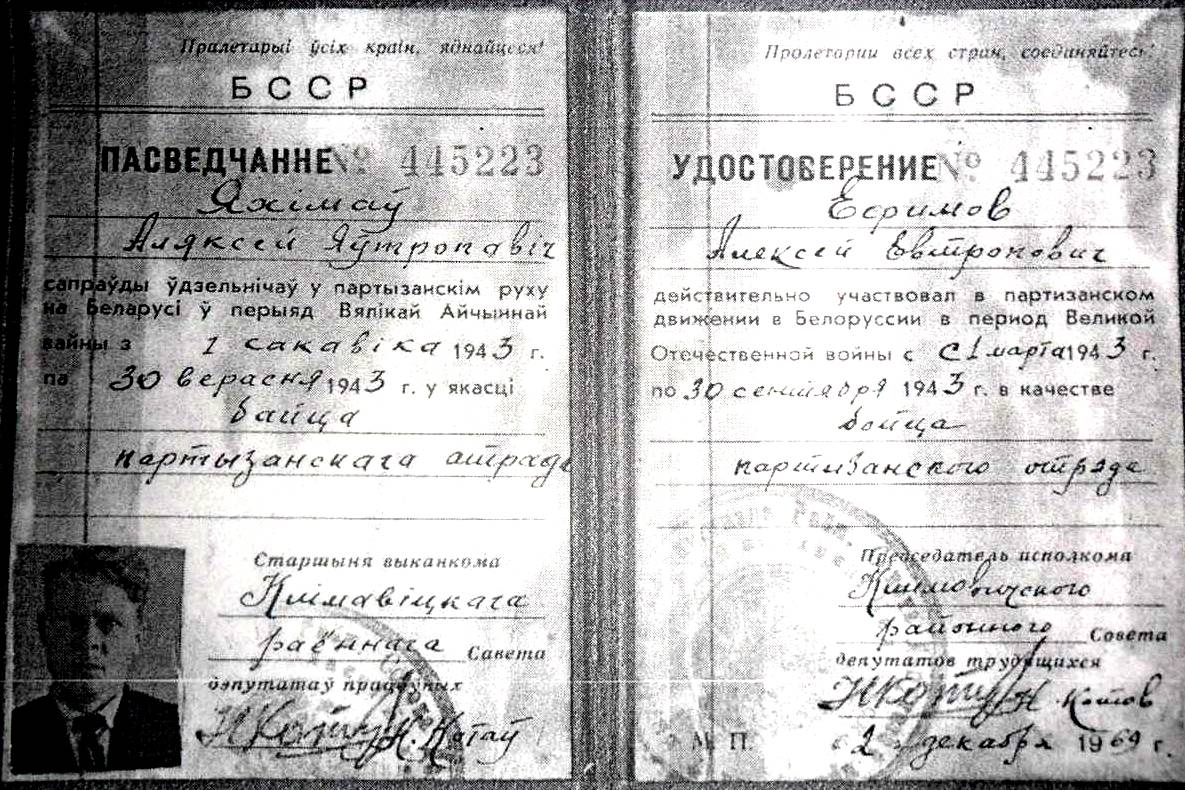 Пралетарыі ўсіх краін, яднайцеся!
БССР
ПАСВЕДЧАННЕ № 445223
Яхімаў
Аляксей Яўтропавіч
сапраўды ўдзельнічаў у партызанскім руху
на Беларусі ў перыяд Вялікай Айчыннай
вайны з 1 сакавіка 1943 г.
па 30 верасня 1943 г. у якасці
байца
партызанскага атрада
Старшыня выканкома
Клімавіцкага
раённага Савета
дэпутатаў працоўных
Н. Котаў
Пролетарии всех стран, соединяйтесь!
БССР
УДОСТОВЕРЕНИЕ № 445223
Ефимов
Алексей Евтропович
действительно участвовал в партизанском
движении в Белоруссии в период Великой
Отечественной войны с с 1 марта 1943 г.
по 30 сентября 1943 г. в качестве
бойца
партизанского отряда
Председатель исполкома
Климовичского
районного Совета
депутатов трудящихся
Н. Котов
М. П. 2 декабря 1969 г.